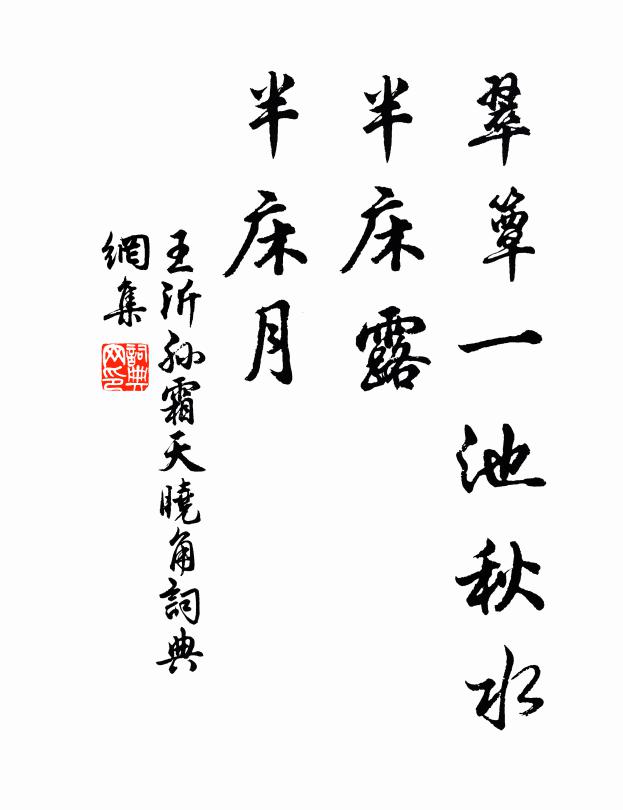 翠簟一池秋水
半床露
半床月
王沂孫霜天曉角詞典
網集
詞典
网印